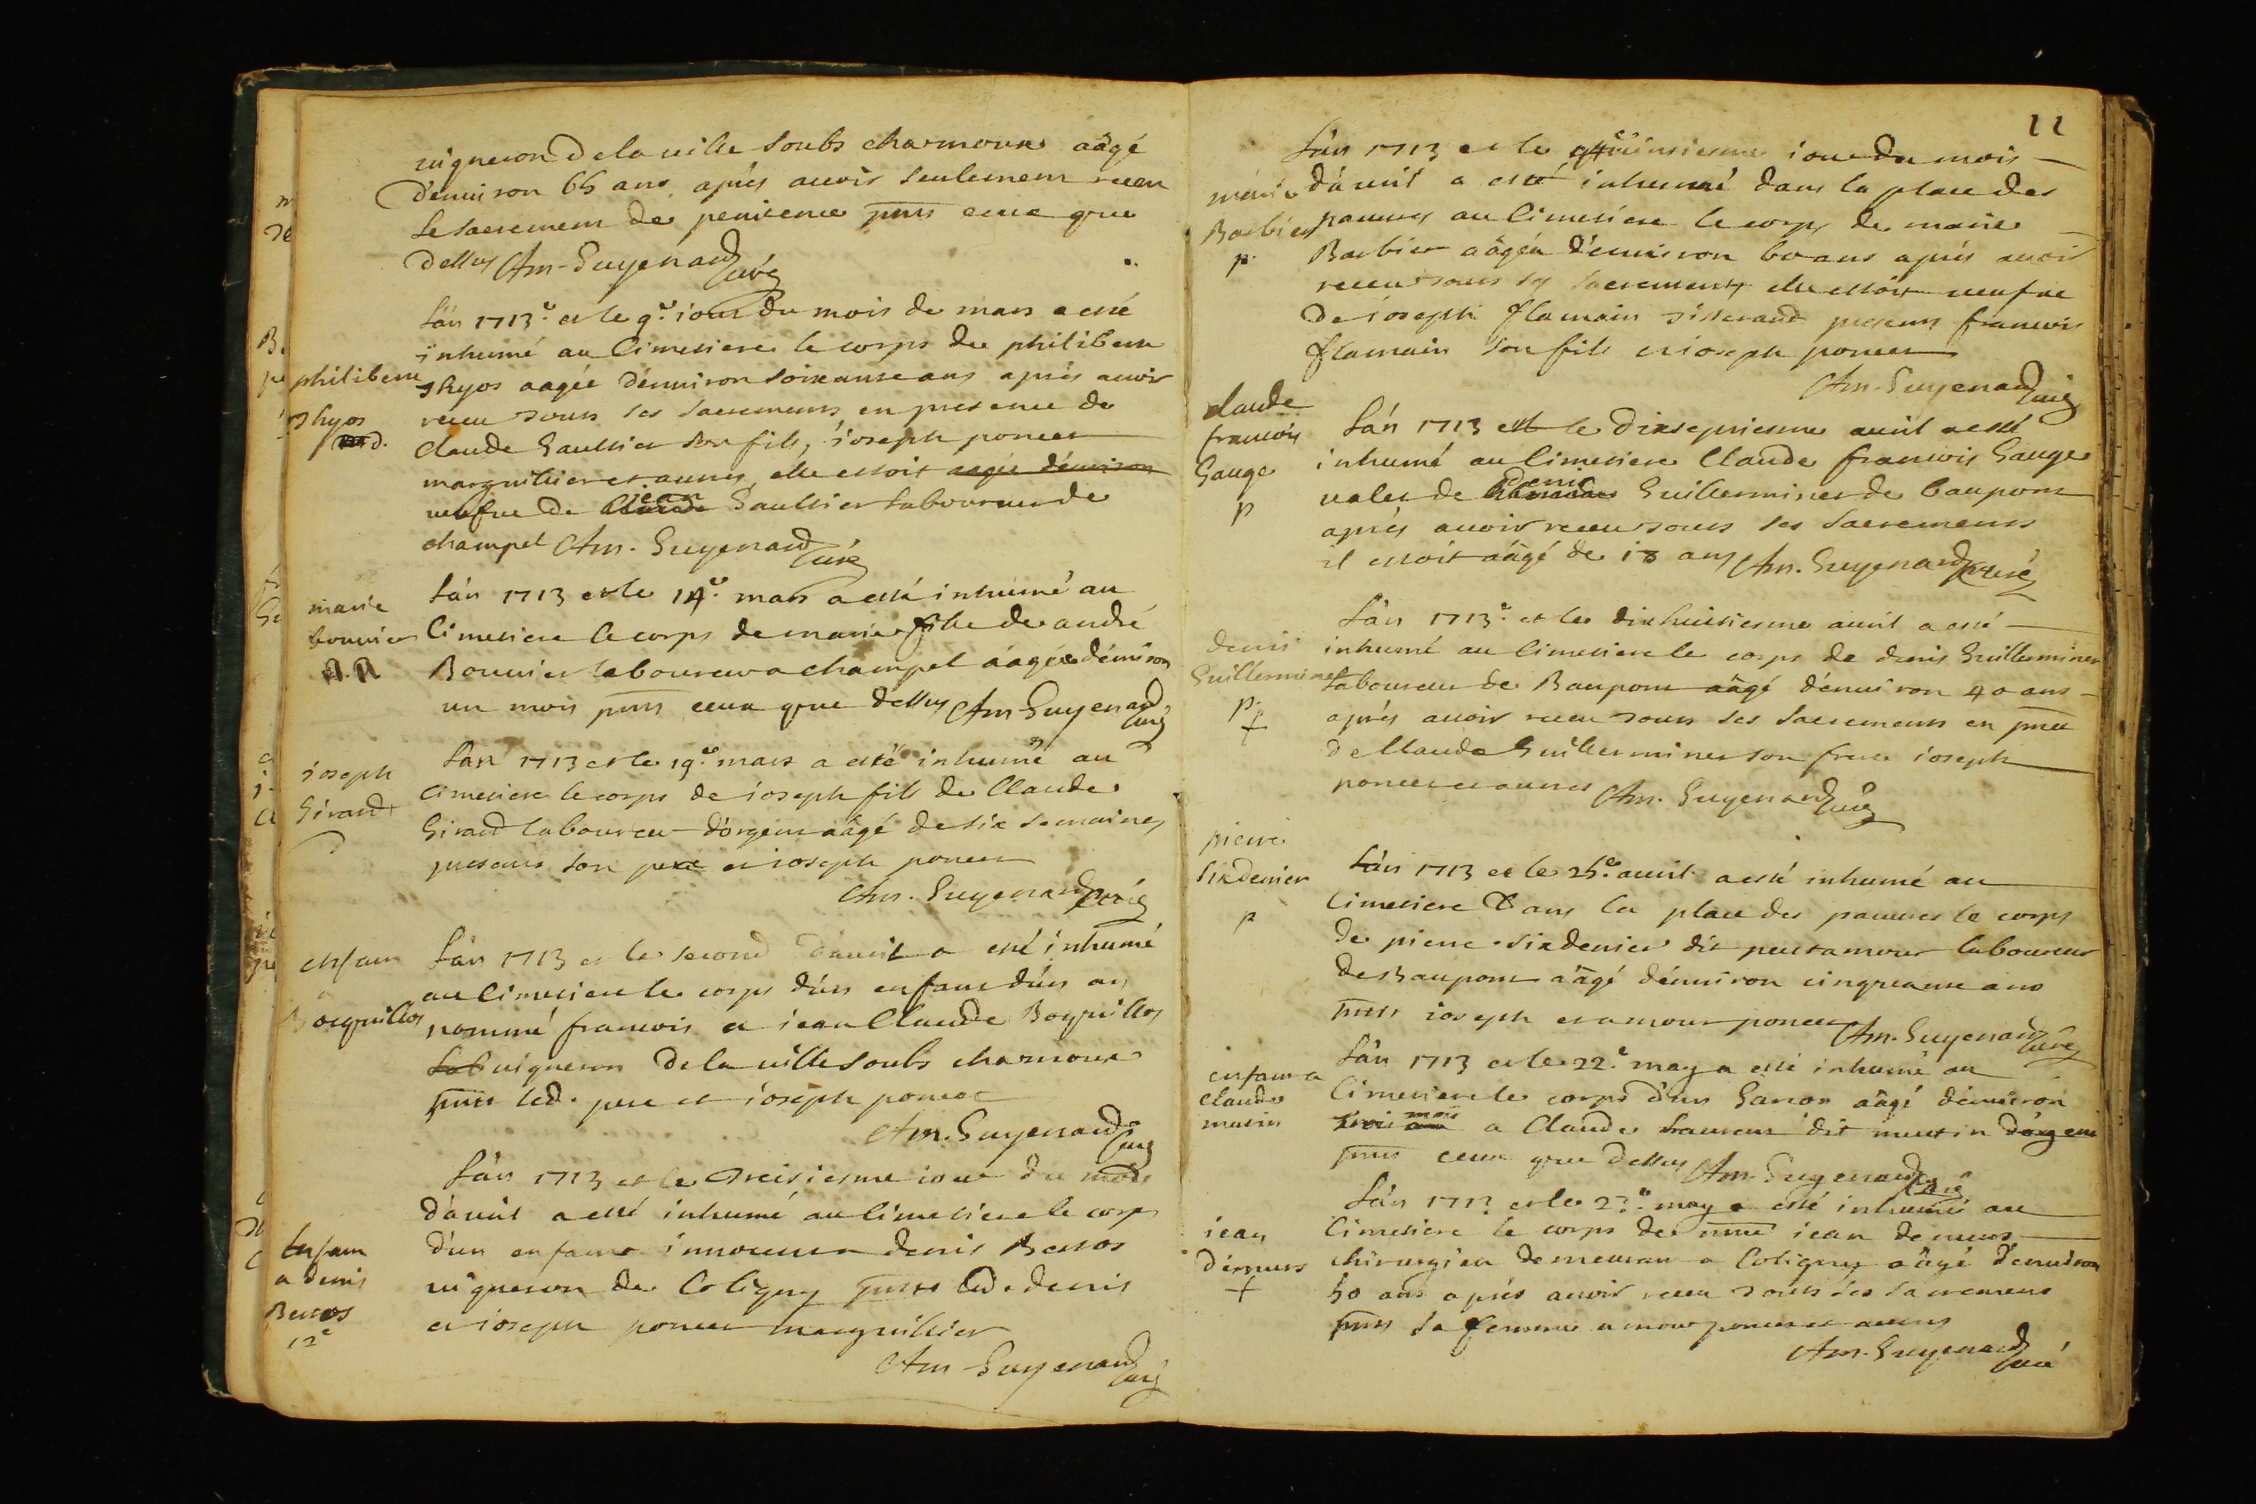 vigneron de la ville soubs charmoux aâgé
d'environ 65 ans après avoir seulement receu
le sacrement de penitence pnts ceux que
dessus Am. Guyenard curé
L'an 1713.e et le 9.e iour du mois de mars a esté
philiberte
inhumé au Cimetiere le corps de philiberte
thyos
thyos aagée d'environ soixante ans après avoir
receu tous ses sacrements en presence de
claude Gaultier son fils, ioseph poncet
marguillier et autres, elle estoit aagée d'environ
veufve de jean Gaultier laboureur de
champel Am. Guyenard curé
marie
bouvier
L'an 1713 et le 14.e mars a esté inhumé au
Cimetiere le corps de marie fille de andré
Bouvier laboureur a champel aâgée d'environ
un mois pnts ceux que dessus Am Guyenard curé
ioseph
Girard
L'an 1713 et le 19.e mars a esté inhumé au
Cimetiere le corps de ioseph fils de Claude
Girard laboureur d'orgent aâgé de six semaines
presents son pere et ioseph poncet
Am. Guyenard curé
enfant
a
Bocquillos
L'an 1713 et le second d'avril a esté inhumé
au Cimetiere le corps d'un enfant d'un an
nommé francois a iean Claude Boquillos
lab vigneron de la ville soubs charmoux
pnts led. pere et ioseph poncet
Am. Guyenard curé
L'an 1713 et le treisiesme iour du mois
d'avril a esté inhumé au Cimetiere le corps
Enfant
a denis
Bessos
12e
d'un enfant innocent a denis Bessos
vigneron de Coligny pnts led. denis
et ioseph poncet marguillier
Am Guyenard curé
11
L'an 1713 et le iour du mois
marie
Barbier
p.
d'avril a esté inhumé dans la place des
pauvres au Cimetiere le corps de marie
Barbier aâgée d'environ 60 ans après avoir
receu tous ses sacrements elle estoit veufve
de ioseph flamain tisserand presents francois
flamain son fils et ioseph poncet
Am. Guyenard curé
claude
francois
Gauge
p
L'an 1713 et le dixseptiesme avril a esté
inhumé au Cimetiere Claude francois Gauge
valet de denis Guillerminet de baupont
après avoir receu tous ses sacrements
il estoit aâgé de 18 ans Am. Guyenard curé
L'an 1713.e et le dixhuitiesme avril a esté
denis
Guillerminet
p.
+
inhumé au Cimetiere le corps de denis Guillerminet
laboureur de Baupont aâgé d'environ 40 ans
après avoir receu tous ses sacrements en pnce
de Claude Guillerminet son frere ioseph
poncet et autres Am. Guyenard curé
pierre
Sixdenier
p
L'an 1713 et le 25.e avril a esté inhumé au
Cimetiere dans la place des pauvres le corps
de pierre sixdenier dit peutamour laboureur
de baupont aâgé d'environ cinquante ans
pnts ioseph et amour poncet Am. Guyenard curé
enfant a
claude
mutin
L'an 1713 et le 22.e may a esté inhumé au
Cimetiere le corps d'un Garcon aâgé d'environ
trois mois a Claude laurent dit mutin d'orgent
pnts ceux que dessus Am Guyenard curé
iean
demurs
+
L'an 1713 et le 23.e may a esté inhumé au
Cimetiere le corps de iean demurs
chirurgien demeurant a Coligny aâgé d'environ
50 ans après avoir receu tous ses sacrements
pnts sa femme amour poncet et autres
Am. Guyenard curé